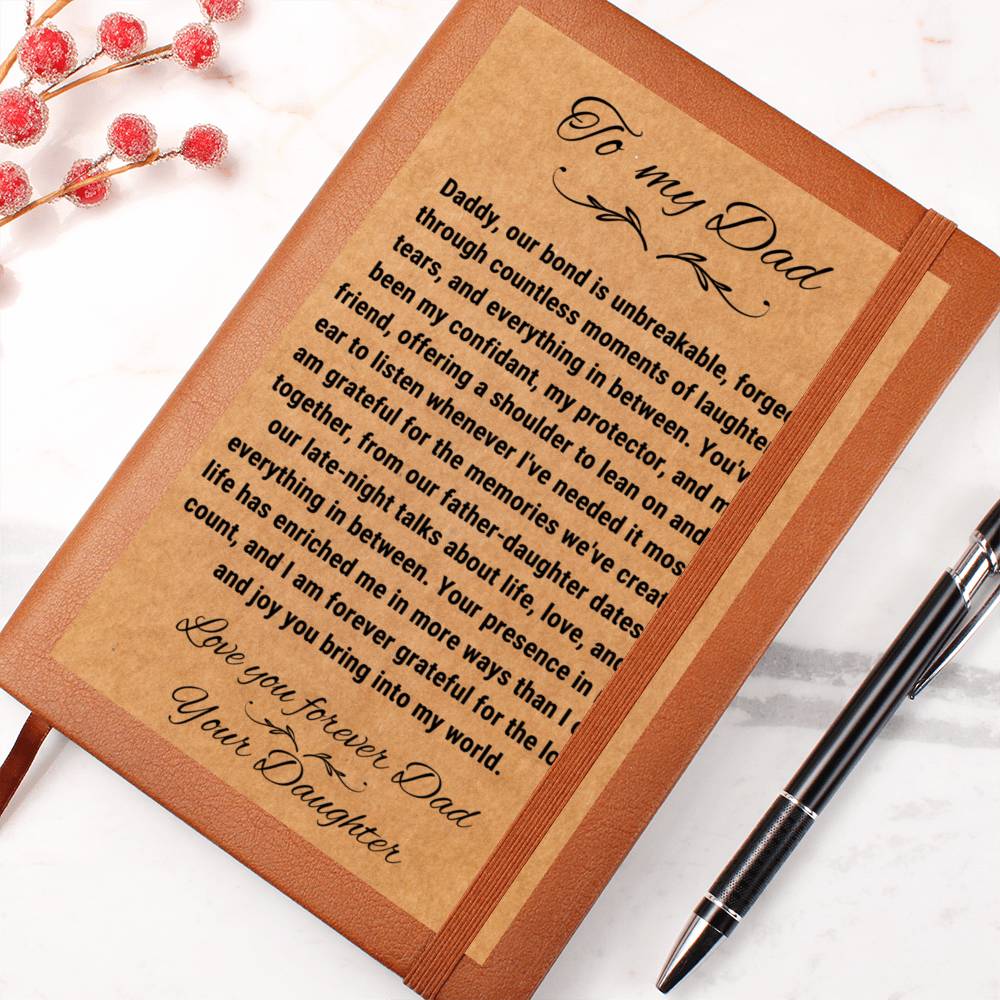 To my Dad
Daddy, our bond is unbreakable, forged
through countless moments of laughte
tears, and everything in between. You'v
been my confidant, my protector, and m
friend, offering a shoulder to lean on and
ear to listen whenever I've needed it mos
am grateful for the memories we've creat
together, from our father-daughter dates
our late-night talks about life, love, and
everything in between. Your presence in
life has enriched me in more ways than I
count, and I am forever grateful for the lo
and joy you bring into my world.
Love you forever Dad
Your Daughter